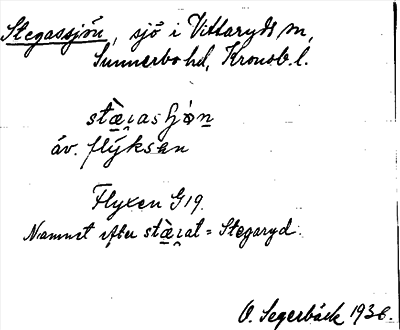 Stegassjön, sjö i Vittaryds sn,
Sunnerbo hd, Kronob. l.
stæ̀ɪasʃøn
äv. flýksen
Flyxen G19.
Namnet efter stæ̀ɪat = Stegaryd.
O. Segerbäck 1936.